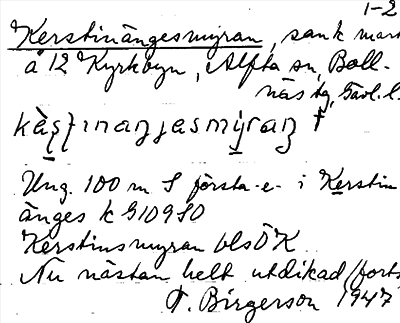 1-2
Kerstinängesmyran, sank mark
å 12 Kyrkbyn, Alfta sn, Boll-
näs tg, Gävl. l.
kæ̀ʂʈɪnaŋjasmýraŋ †
Ung. 100 m S första -e- i Kerstin
änges k G109 SO
Kerstinsmyran blsÖK
Nu nästan helt utdikad (forts
T. Birgerson 1947